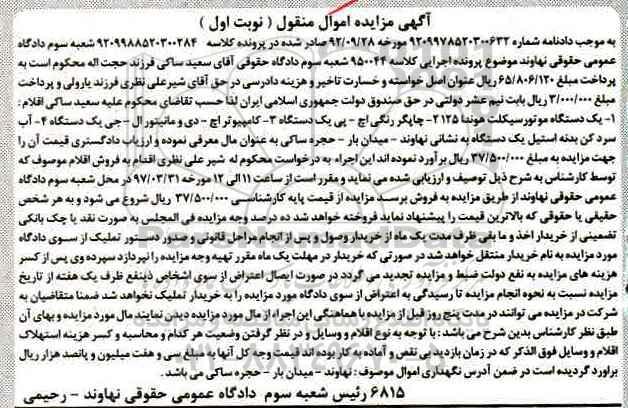 آگهی مزایده اموال منقول ( نوبت اول )
به موجب دادنامه شماره ۹۲۰۹۹۷۸۵۲۰۳۰۰۶۳۲ مورخه ۹۲/۰۹/۲۸ صادر شده در پرونده کلاسه ۹۲۰۹۹۸۸۵۲۰۳۰۰۲۸۴ شعبه سوم دادگاه
عمومی حقوقی نهاوند موضوع پرونده اجرایی کلاسه ۹۵۰۰۴۴ شعبه سوم دادگاه حقوقی آقای سعید ساکی فرزند حجت اله محکوم است به
پرداخت مبلغ ۶۵/۸۰۶/۱۲۰ ریال عنوان اصل خواسته و خسارت تاخیر و هزینه دادرسی در حق آقای شیرعلی نظری فرزند یارولی و پرداخت
مبلغ ۳/۰۰۰/۰۰۰ ریال بابت نیم عشر دولتی در حق صندوق دولت جمهوری اسلامی ایران لذا حسب تقاضای محکوم علیه سعید ساکی اقلام :
۱- یک دستگاه موتورسیکلت هوندا ۱۲۵ ۲- چاپگر رنگی اچ - پی یک دستگاه ۳- کامپیوتر اچ - دی و مانیتور ال - جی یک دستگاه ۴- آب
سرد کن بدنه استیل یک دستگاه به نشانی نهاوند - میدان بار - حجره ساکی به عنوان مال معرفی نموده و ارزیاب دادگستری قیمت آن را
جهت مزایده به مبلغ ۳۷/۵۰۰/۰۰۰ ریال برآورد نموده اند این اجراء به درخواست محکوم له شیر علی نظری اقدام به فروش اقلام موصوف که
توسط کارشناس به شرح ذیل توصیف و ارزیابی شده می نماید و مقرر است از ساعت ۱۱ الی ۱۲ مورخه ۹۷/۰۳/۳۱ در محل شعبه سوم دادگاه
عمومی حقوقی نهاوند از طریق مزایده به فروش برسد مزایده از قیمت پایه کارشناسی ۳۷/۵۰۰/۰۰۰ ریال شروع می شود و به هر شخص
حقیقی یا حقوقی که بالاترین قیمت را پیشنهاد نماید فروخته خواهد شد ده درصد وجه مزایده فی المجلس به صورت نقد یا چک بانکی
تضمینی از خریدار اخذ و ما بقی ظرف مدت یک ماه از خریدار وصول و پس از انجام مراحل قانونی و صدور دستور تملیک از سوی دادگاه
مورد مزایده به نام خریدار منتقل خواهد شد در صورتی که خریدار در مهلت یک ماه مقرر تهیه وجه مزایده را نپردازد سپرده وی پس از کسر
هزینه های مزایده به نفع دولت ضبط و مزایده تجدید می گردد در صورت ایصال اعتراض از سوی اشخاص ذینفع ظرف یک هفته از تاریخ
مزایده نسبت به نحوه انجام مزایده تا رسیدگی به اعتراض از سوی دادگاه مورد مزایده را به خریدار تملیک نخواهد شد ضمنا متقاضیان به
شرکت در مزایده می توانند در مدت پنج روز قبل از مزایده با هماهنگی این اجراء از مال مورد مزایده دیدن نمایند مال مورد مزایده و بهای آن
طبق نظر کارشناس بدین شرح می باشد : با توجه به نوع اقلام و وسایل و در نظر گرفتن وضعیت هر کدام و محاسبه و کسر هزینه استهلاک
اقلام و وسایل فوق الذکر که در زمان بازدید بی نقص و آماده به کار بوده اند قیمت وجه کل آنها به مبلغ سی و هفت میلیون و پانصد هزار ریال
برآورد گردیده است در ضمن آدرس نگهداری اموال موصوف : نهاوند - میدان بار - حجره ساکی می باشد .
۶۸۱۵ رئیس شعبه سوم دادگاه عمومی حقوقی نهاوند - رحیمی